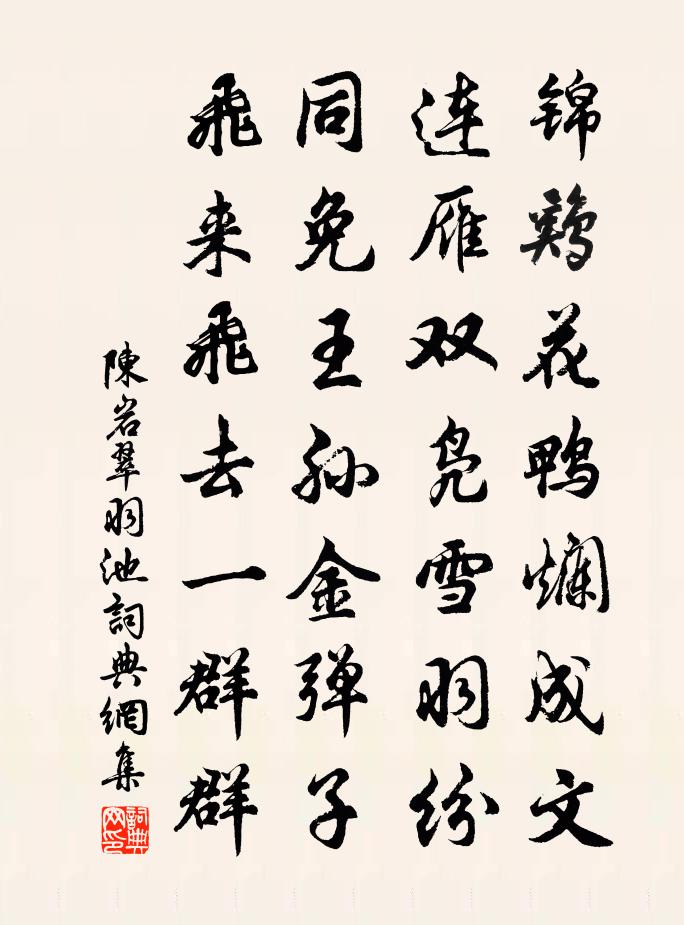 锦鷄花鸭爛成文
连雁双凫雪羽纷
同免王孙金弹子
飛来飛去一群群
陳岩翠羽池詞典網集
詞典网印